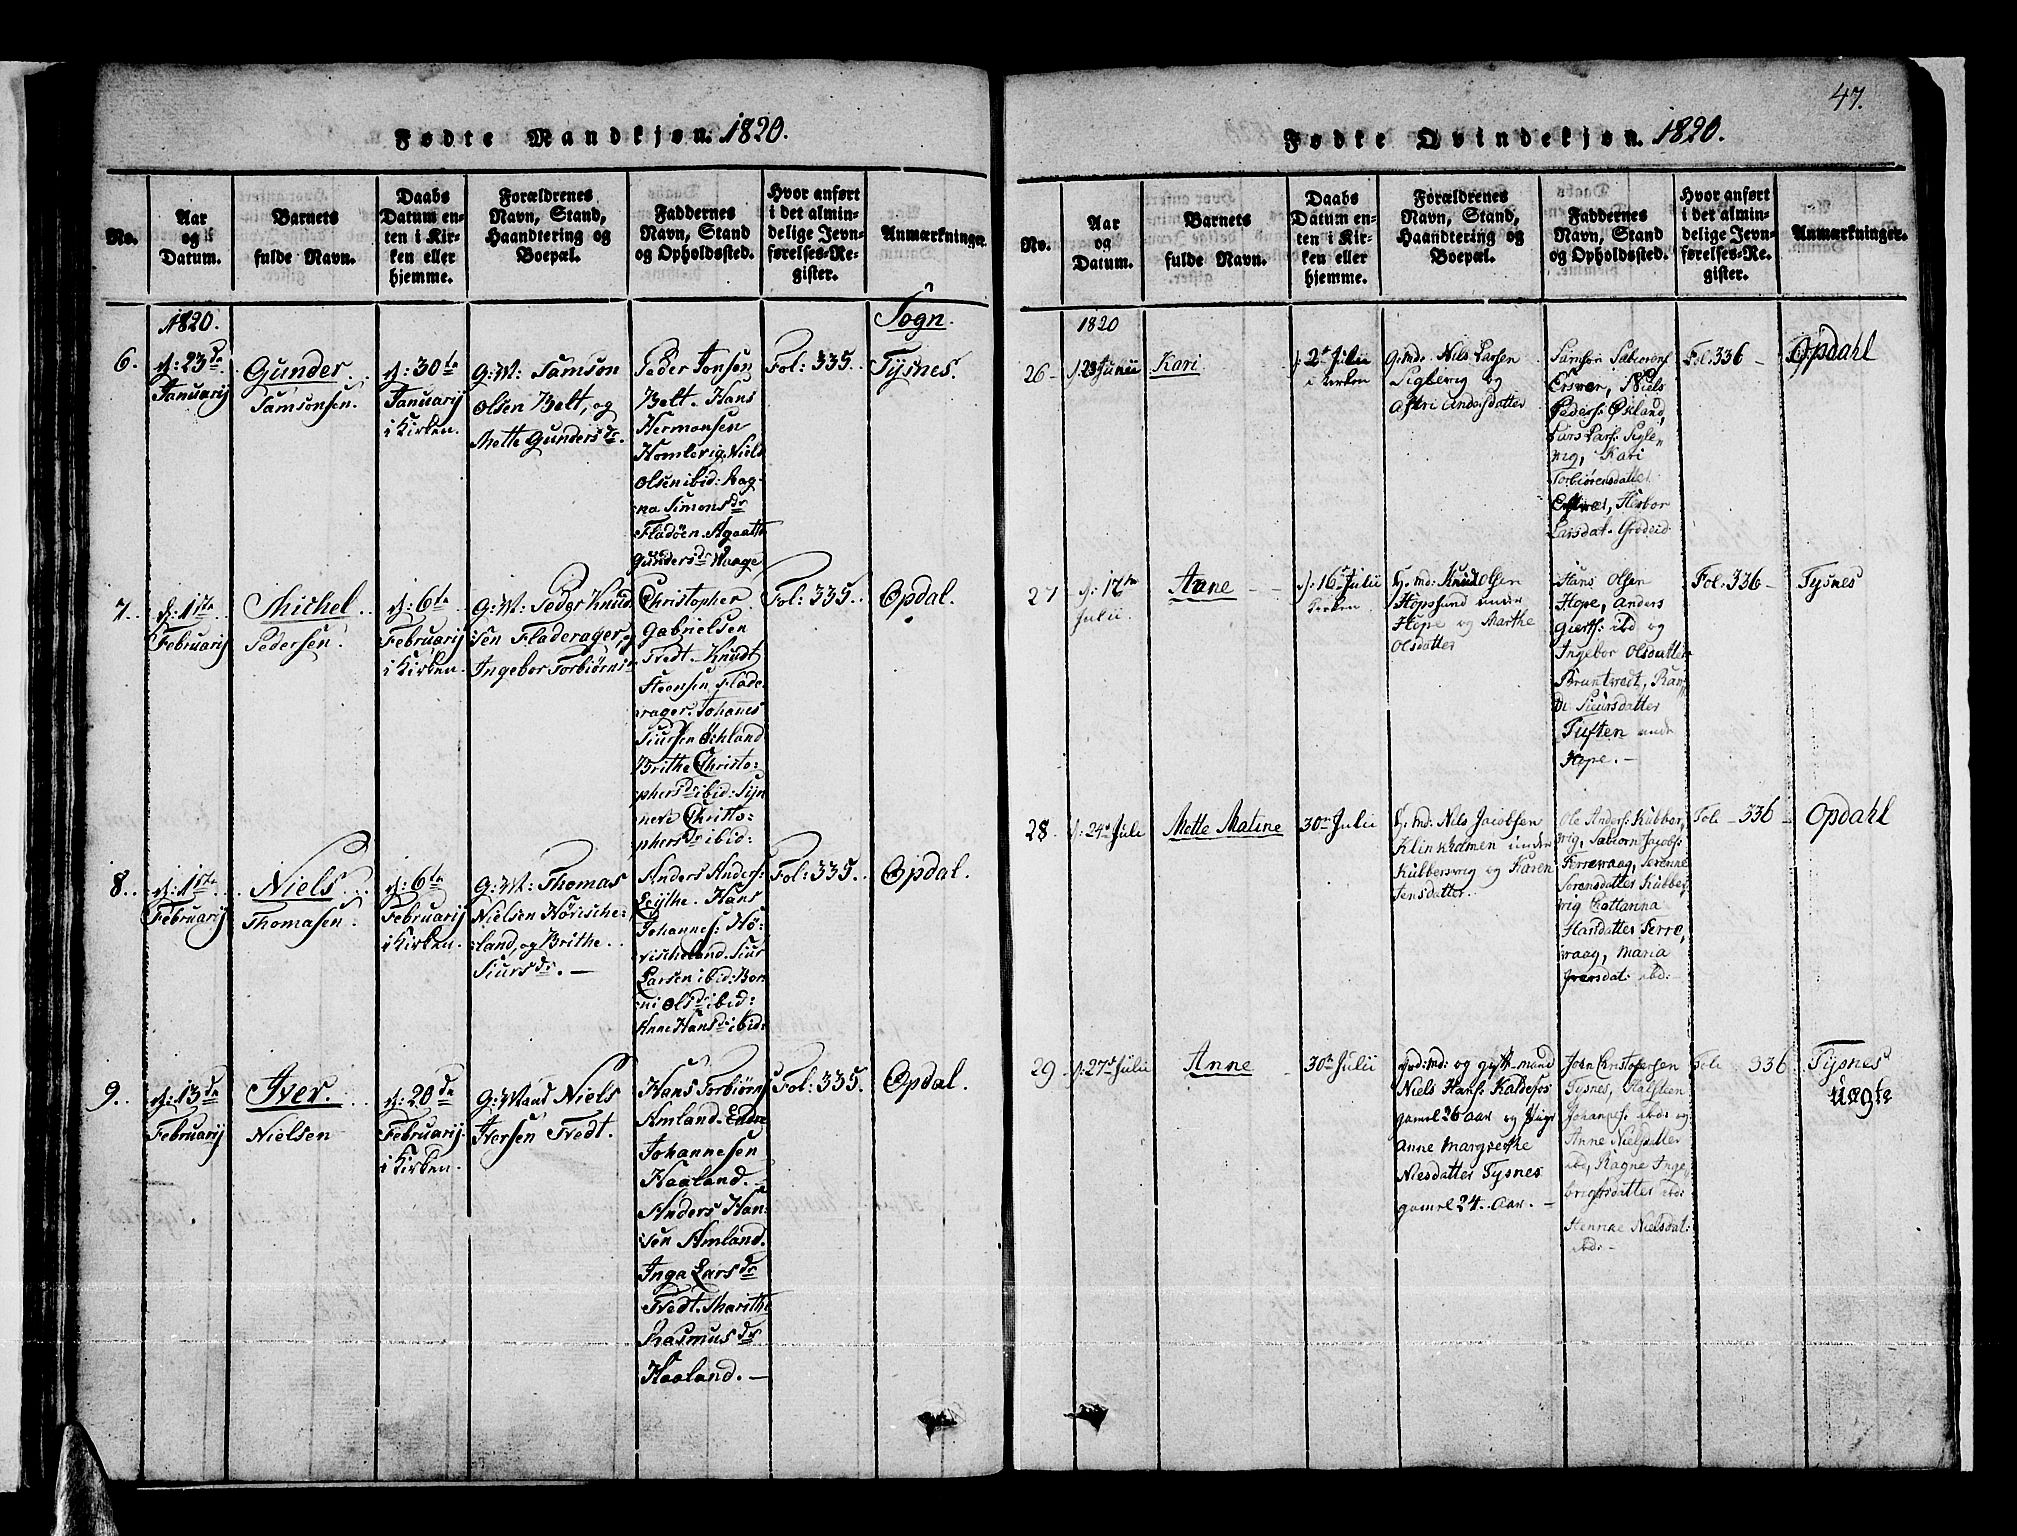 47.
Fødte Mandkjøn. 1820.
No.
Aar
og
Datum.
Barnets
fulde Navn.
Daabs
Datum en-
ten i Kir-
ken eller
hjemme.
Forældrenes
Navn, Stand,
Haandtering og
Boepæl.
Faddernes
Navn, Stand
og Opholdssted.
Hvor anført
i det almin-
delige Jevn-
førelses-Re-
gister.
Anmærkninger.
1820.
Sogn.
6.
d: 23de
Januarij
Gunder
Samsonsen.
d: 30te
Januarij
i Kirken.
G: M: Samson
Olsen Belt, og
Mette Gundersdr.
Peder Jonsen
Belt. Hans
Hermonsen
Homlevig, Niels
Olsen ibid: Rag-
na Simonsdr
Fladøen. Agaathe
Gundersdr Waage
Fol: 335.
Tysnes.
7.
d: 1ste
Februarij
Michel
Pedersen.
d: 6te
Februarij
i Kirken.
G: M: Peder Knud
sen Fladerager, og
Ingebor Torbiørnsdr
Christopher
Gabrielsen
Tvedt. Knudt
Steensen Flade-
rager. Johanes
Siursen Øchland
Brithe Christo-
phersdr ibid: Syn
neve Christo-
phersdr ibid:
Fol: 335.
Opdal.
8.
d: 1ste
Februarij
Niels
Thomasen.
d: 6te
Februarij
i Kirken.
G: M: Thomas
Nielsen Hövische-
land, og Brithe
Siursdr. —
Anders Anders:
Lijthe. Hans
Johannes: Hö-
vischeland. Siur
Larsen ibid: Bor-
ni Olsdr ibid:
Anne Hansdr ibid:
Fol: 335.
Opdal.
9.
d: 13de
Februarij
Iver
Nielsen
d: 20de
Februarij.
i Kirken.
G: Mand Niels
Iversen Tvedt.
Hans Torbiørns
Amland. Endre
Johannesen
Haaland. —
Anders Han-
sen Amland.
Inga Larsdr
Tvedt. Marithe
Rasmusdr
Haaland. —
Fol: 335.
Opdal.
Fødte Qvindekjøn. 1820.
No.
Aar
og
Datum.
Barnets
fulde Navn.
Daabs
Datum en-
ten i Kir-
ken eller
hjemme.
Forældrenes
Navn, Stand,
Haandtering og
Boepæl.
Faddernes
Navn, Stand
og Opholdssted.
Hvor anført
i det almin-
delige Jevn-
førelses-Re-
gister.
Anmærkninger.
1820
26
Junii
Kari
d: 2d Julii
i Kirken
G: md: Nils Larsen
Siglevig og
Astri Andersdatter
Samson
Niels
Peders: Økland,
Lars Lars: Sigle-
vig, Kari
Torbiørensdatter
Larsdat. Grødeid
Fol: 336 —
Opdahl
27
d: 12te
Julii.
Anne
d: 16 Julii
Kirken
G. md: Knud Olsen
Hopssund under
Hope og Marthe
Olsdatter
Hans Olsen
Hope, Anders
Gierts: ibd og
Ingebor Olsdatter
Bruntvedt,
Siursdatter
Tuften under
Hope. —
Fol: 336 —
Tysnes
28.
d: 24d Juli
Mette Matine
30te Julii
G. md: Nils Jacobsen
Klinkholmen under
Kübbervig og Karen
Jensdatter.
Ole Anders: Kübber
vig, Sabiorn Jacobs:
Færrevaag, Serenne
Sorensdatter Kübber
vig Chattarina
Hansdatter Ferre
vaag, Maria
Iversdat: ibd:
Fol — 336 —
Opdahl
29
d: 27d Julii
Anne
30te Julii
Niels Hans: Kaldefos
gaml 26 aar og Pige
Anne Margrethe
Nielsdatter Tysnes
gaml 24. aar. —
John Christophersen
Tysnes,
Johannes: ibd: og
Anne Nielsdatter
ibd, Ragne Inge
brigtsdatter ibd:
Henrike Nielsdat:
ibd: —
Fol: 336
Tysnes
üægte